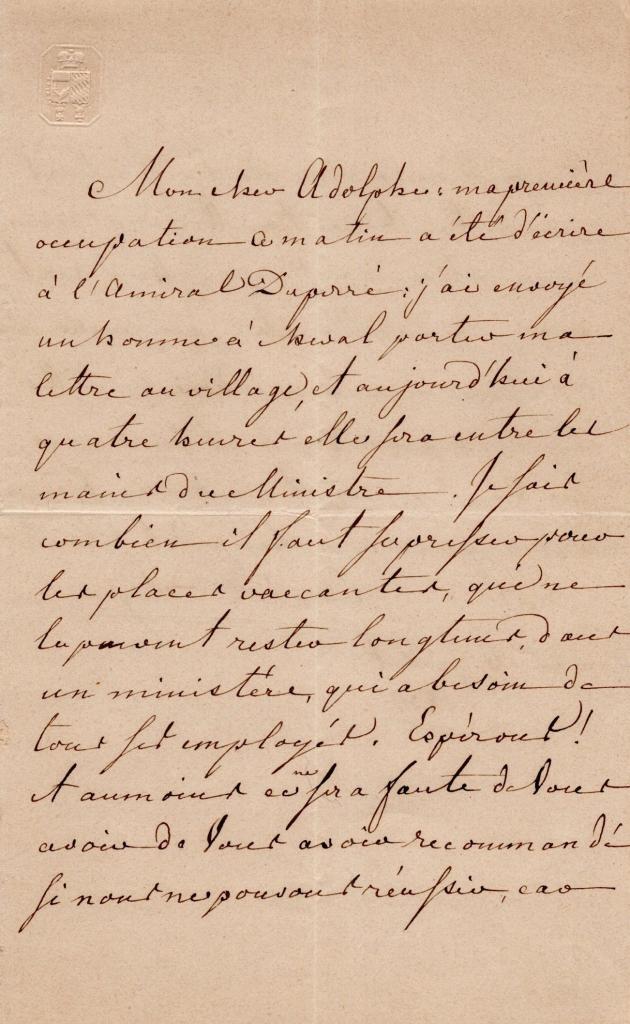 Mon cher Adolphe : ma première
occupation ce matin a été d'écrire
à l'Amiral Duperré : j'ai envoyé
un homme à cheval porter ma
lettre au village, et aujourd'hui à
quatre heures elle sera entre les
mains du Ministre. Je sais
combien il faut se presser pour
les places vaccantes, qui ne
le peuvent rester longtems, dans
un ministère, qui a besoin de
tous ses employés. Espérons !
et au moins ce ne sera faute de vous
avoir de vous avoir recommandé
si nous ne pouvons réussir, car